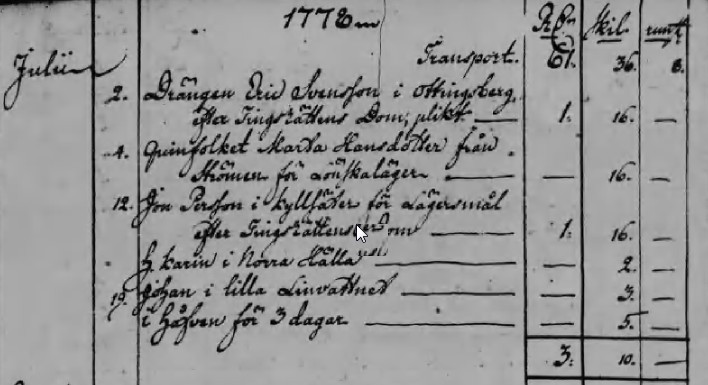 1778 R:dr Skil. runst.
Julii Transport. 61. 36. 8.
2. Drängen Eric Svensson i Ottingsberg,
efter Tingsrättens Dom, plikt — 1. 16. —
4. Qvinfolket Marta Hansdotter från
Strömen för Lönskaläger — — 16. —
12. Jon Persson i kyllsäter för Lägersmål
efter Tingsrättens Dom — 1. 16. —
h. Karin i Norra Hålla — — 2. —
19. Johan i lilla Linvattnet — — 3. —
i håfven för 3 dagar — — 5. —
3. 10. —